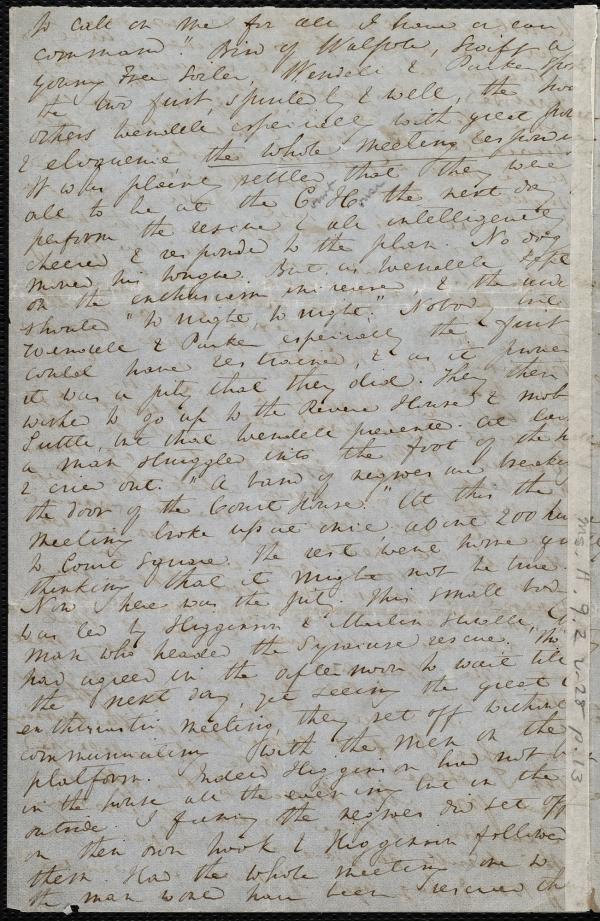 to call on me for all I have or can
command." Bird of Walpole, Swift a
young Free Soiler, Wendell & Parker spoke
the two first, spiritedly & well, the two
others Wendell especially with great
& eloquence the whole meeting
It was plainly settled that they were
all to be at the C. H. the next day
perform the rescue & all intelligently
cheered & responded to the plan. No dog
moved his tongue. But as Wendell
on the enthusiasm increased, & the
shouted "to night to night." Nobody
Wendell & Parker especially the first
could have restrained, & as it proves
it was a pity that they did. They then
wished to go up to the Revere House & mob
Suttle, but that Wendell prevented. At last
a man struggled into the foot of the
& cried out. "A band of negroes are breaking
the door of the Court House." At this the
meeting broke up at once, about 200
to Court Square. The rest went home
thinking that it might not be true.
Now here was the pity. This small
was led by Higginson & Martin Stowell,
man who headed the Syracuse rescue.
had agreed in the afternoon to wait till
the next day, yet seeing the great &
enthusiastic meeting, they set off without
communicating with the men on the
platform. Indeed Higginson had not
in the house all the evening but in the
outside. I fancy the negroes did set off
on their own hook & Higginson followed
them. Had the whole meeting gone to
the man would have been rescued
Ms. A. 9. 2 v. 28 p. 13